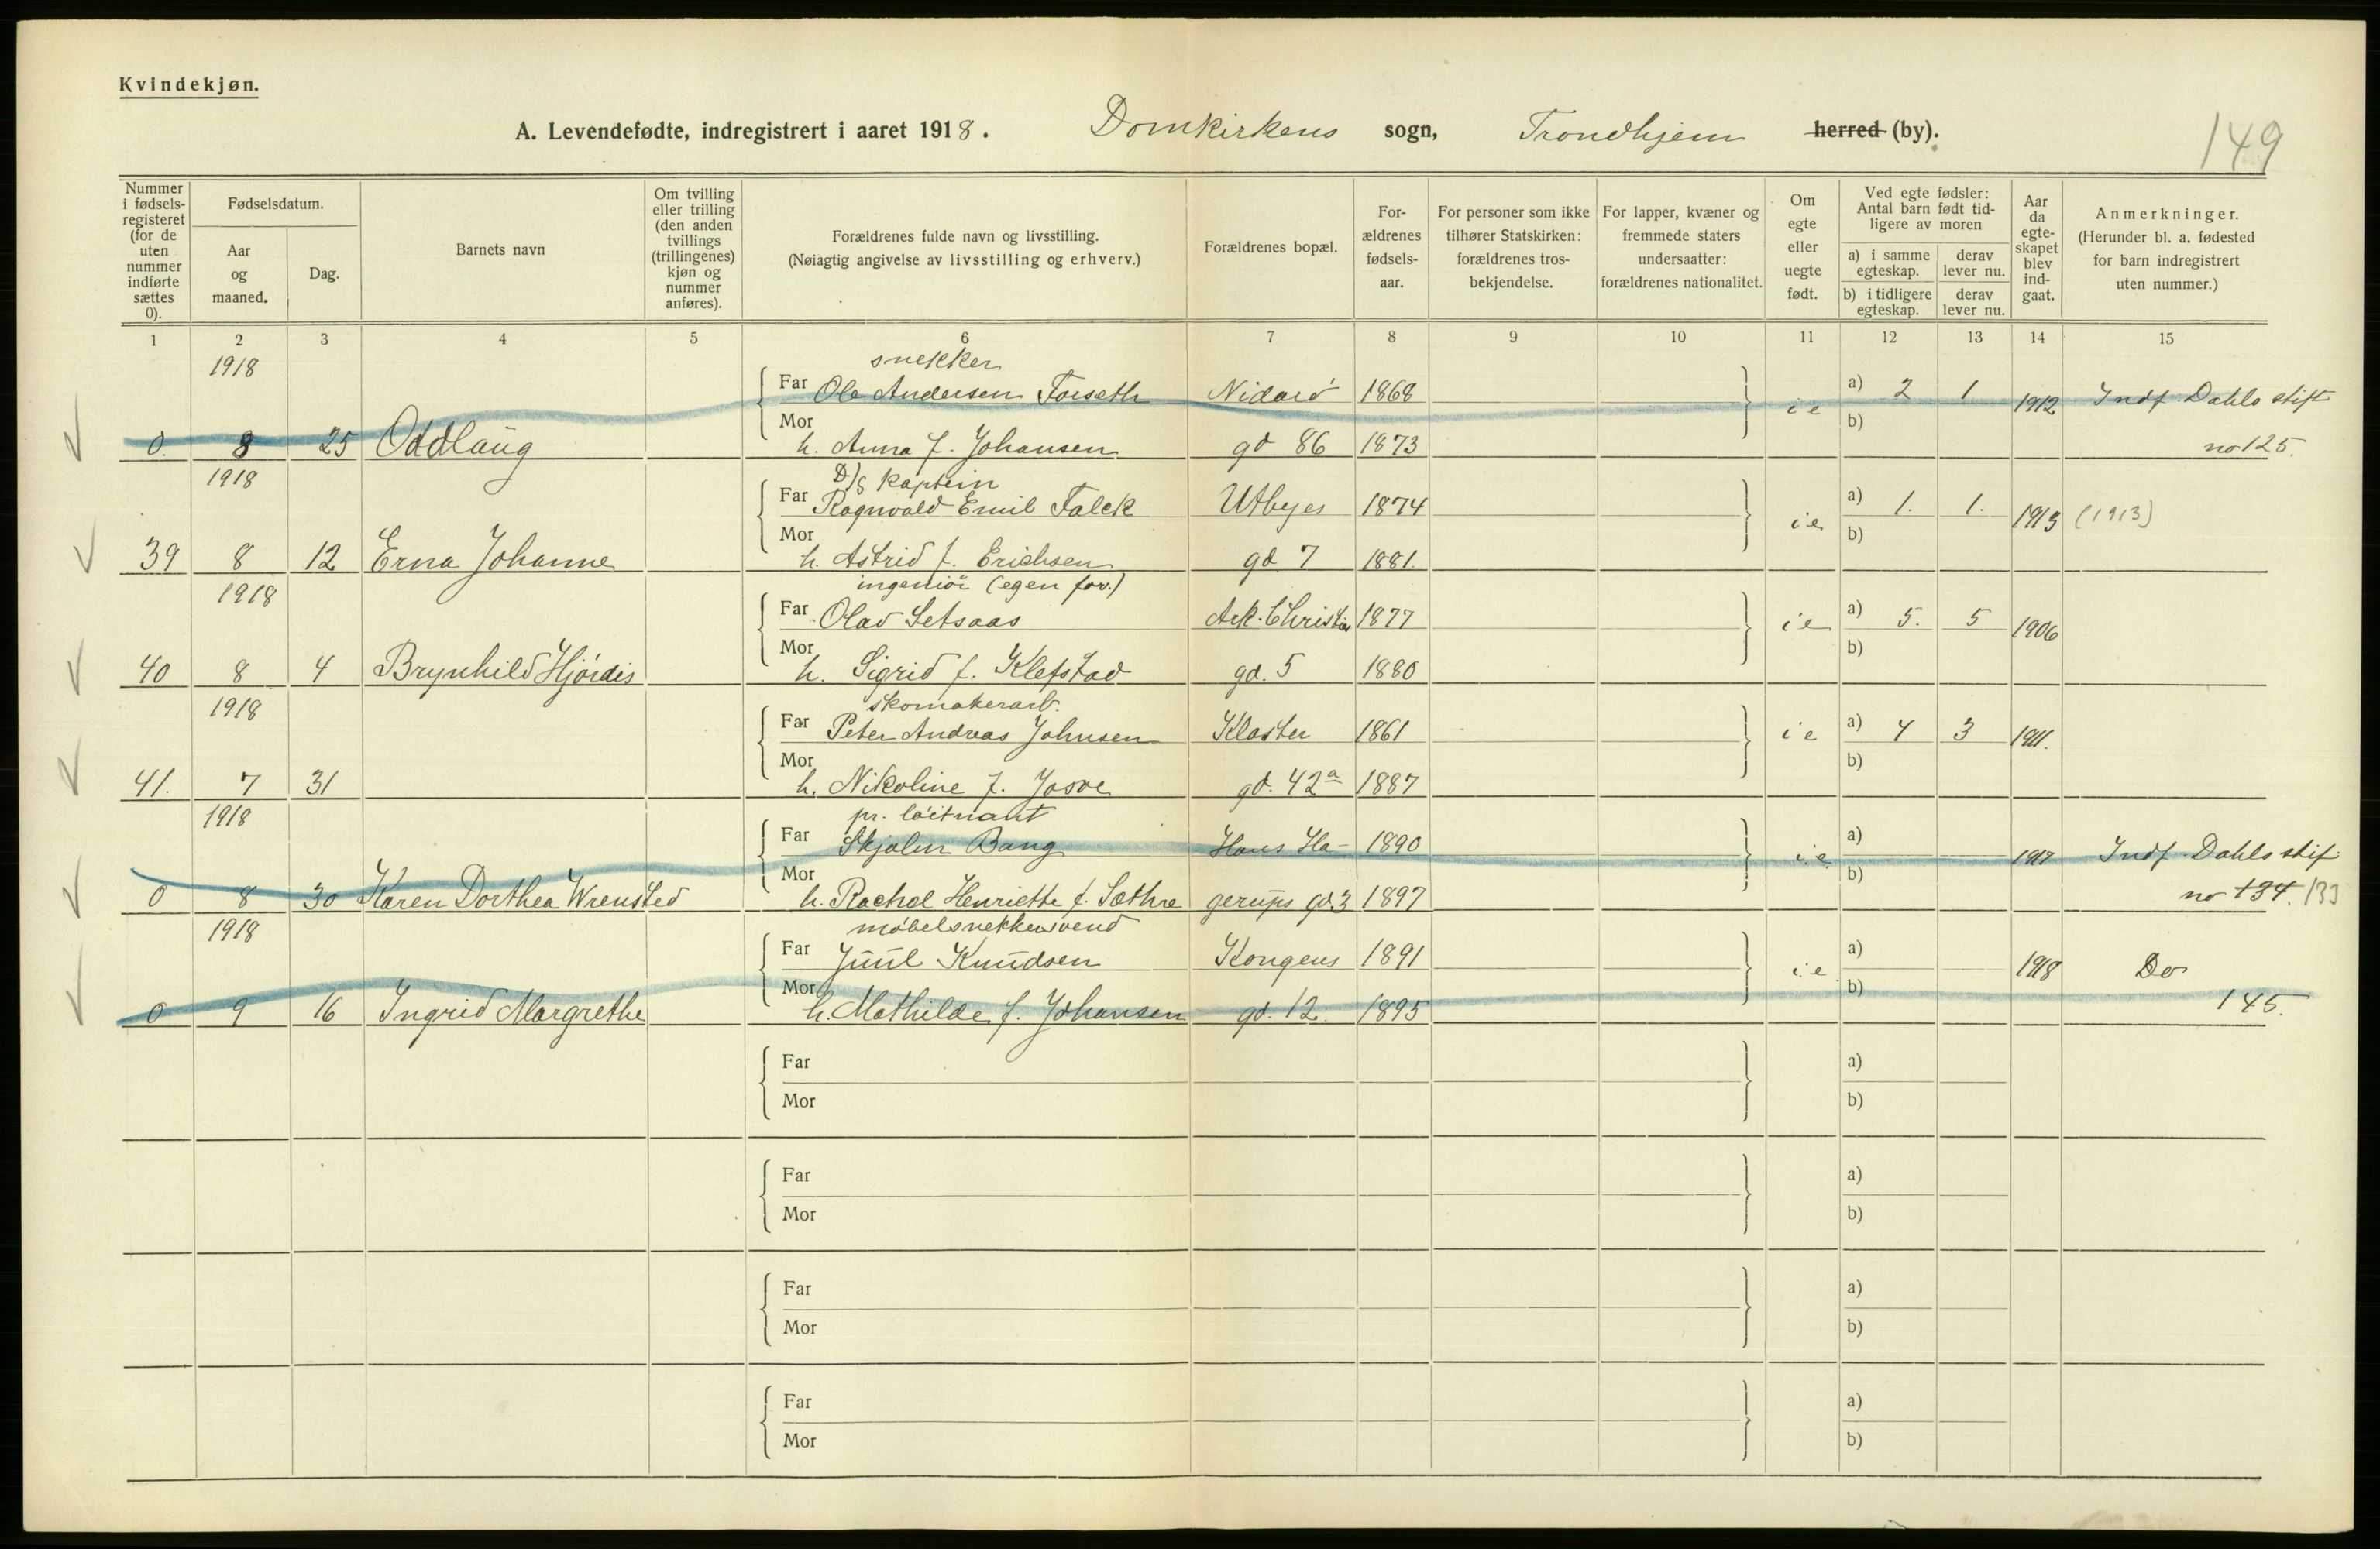 Kvindekjøn.
A. Levendefødte, indregistrert i aaret 1918. Domkirkens sogn, Trondhjem herred (by).
149
Nummer i fødsels-registeret (for de uten nummer indførte sættes 0).
Fødselsdatum.
Aar og maaned.
Dag.
Barnets navn
Om tvilling eller trilling (den anden tvillings (trillingenes) kjøn og nummer anføres).
Forældrenes fulde navn og livsstilling.
(Nøiagtig angivelse av livsstilling og erhverv.)
Forældrenes bopæl.
For-ældrenes fødsels-aar.
For personer som ikke tilhører Statskirken: forældrenes tros-bekjendelse.
For lapper, kvæner og fremmede staters undersaatter: forældrenes nationalitet.
Om egte eller uegte født.
Ved egte fødsler: Antal barn født tid-ligere av moren
a) i samme egteskap.
derav lever nu.
b) i tidligere egteskap.
derav lever nu.
Aar da egte-skapet blev ind-gaat.
Anmerkninger.
(Herunder bl. a. fødested for barn indregistrert uten nummer.)
1 2 3 4 5 6 7 8 9 10 11 12 13 14 15
1918 snekker
Far Ole Andersen Forseth Nidarø 1868 ie a) 2 1 1912 Indf. Dahls stift
0. 8 25 Oddlaug Mor h. Anna f. Johansen gd 86 1873 b) no 125.
1918 D/S kaptein
Far Ragnvald Emil Falck Utbyes 1874 ie a) 1. 1. 1913 (1913)
39 8 12 Erna Johanne Mor h. Astrid f. Erichsen gd 7 1881. b)
1918 ingeniør (egen forr.)
Far Olav Setsaas Ark. Christies 1877 ie a) 5. 5 1906
40 8 4 Brynhild Hjørdis Mor h. Sigrid f. Klefstad gd. 5 1880 b)
1918 skomakerarb.
Far Peter Andreas Johnsen Kloster 1861 ie a) 4 3 1911.
41. 7 31 Mor h. Nikoline f. Josve gd. 42a 1887 b)
1918 pr. løitnant
Far Skjalm Bang Hans Ha- 1890 ie a) 1917 Indf. Dahls stif.
0 8 30 Karen Dorthea Wrensted Mor h. Rachel Henriette f. Sæthre gerups gd 3 1897 b) no 134. 133
1918 møbelsnekkersvend
Far Juul Knudsen Kongens 1891 ie a) 1918 Do
0 9 16 Ingrid Margrethe Mor h. Mathilde f. Johansen gd. 12. 1895 b) 145.
Far a)
Mor b)
Far a)
Mor b)
Far a)
Mor b)
Far a)
Mor b)